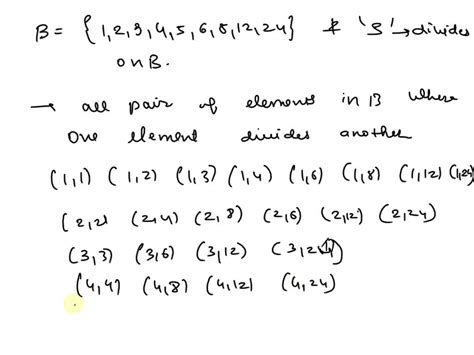 B = {1,2,3,4,5,6,8,12,24} & 'S' → divides
on B.
→ all pair of elements in B where
one element divides another
(1,1) (1,2) (1,3) (1,4) (1,6) (1,8) (1,12) (1,24)
(2,2) (2,4) (2,8) (2,6) (2,12) (2,24)
(3,3) (3,6) (3,12) (3,24)
(4,4) (4,8) (4,12) (4,24)